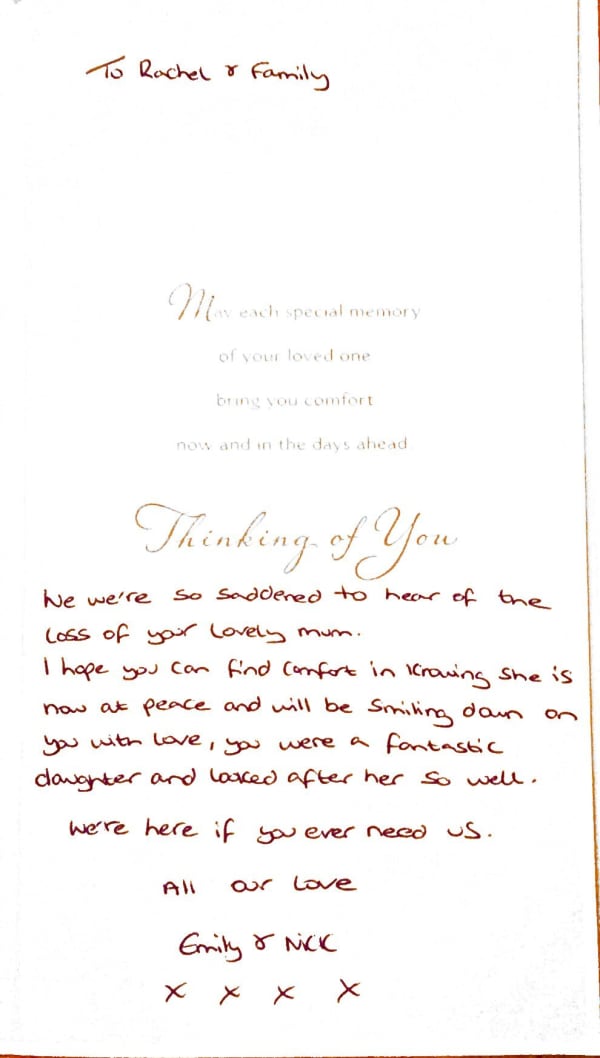 To Rachel & Family
May each special memory
of your loved one
bring you comfort
now and in the days ahead.
Thinking of You
We we're so saddened to hear of the
loss of your lovely mum.
I hope you can find comfort in knowing she is
now at peace and will be smiling down on
you with love, you were a fantastic
daughter and looked after her so well.
We're here if you ever need us.
All our love
Emily & Nick
x x x x